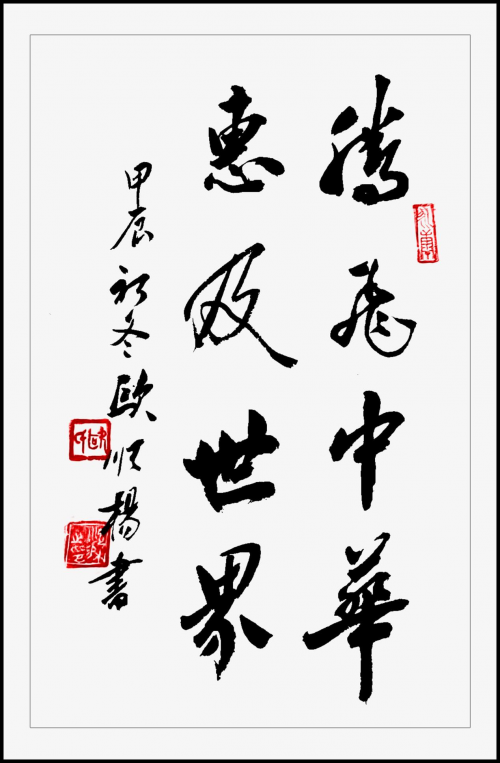 騰飛中華
惠及世界
甲辰初冬歐順楊書